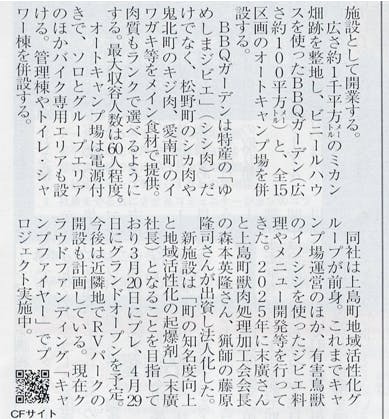 施設として開業する。
　広さ約1千平方㍍のミカン
畑跡を整地し、ビニールハウ
スを使ったBBQガーデン(広
さ約100平方㍍)と、全15
区画のオートキャンプ場を併
設する。
　BBQガーデンは特産の「ゆ
めしまジビエ」(シシ肉)だ
けでなく、松野町のシカ肉や
鬼北町のキジ肉、愛南町のイ
ワガキ等をメイン食材で提供。
肉質もランクで選べるように
する。最大収容人数は60人程度。
　オートキャンプ場は電源付
きで、ソロとグループエリア
のほかバイク専用エリアも設
ける。管理棟やトイレ・シャ
ワー棟を併設する。
　同社は上島町地域活性化グ
ループが前身。これまでキャ
ンプ場運営のほか、有害鳥獣
のイノシシを使ったジビエ料
理やメニュー開発等を行って
きた。2025年に末廣さん
と上島町獣肉処理加工会会長
の森本英隆さん、猟師の藤原
隆司さんが出資し法人化した。
　新施設は「町の知名度向上
と地域活性化の起爆剤」(末廣
社長)となることを目指して
おり3月20日にプレ、4月29
日にグランドオープンを予定。
今後は近隣地でRVパークの
開設も計画している。現在ク
ラウドファンディング「キャ
ンプファイヤー」でプ
ロジェクト実施中。
CFサイト